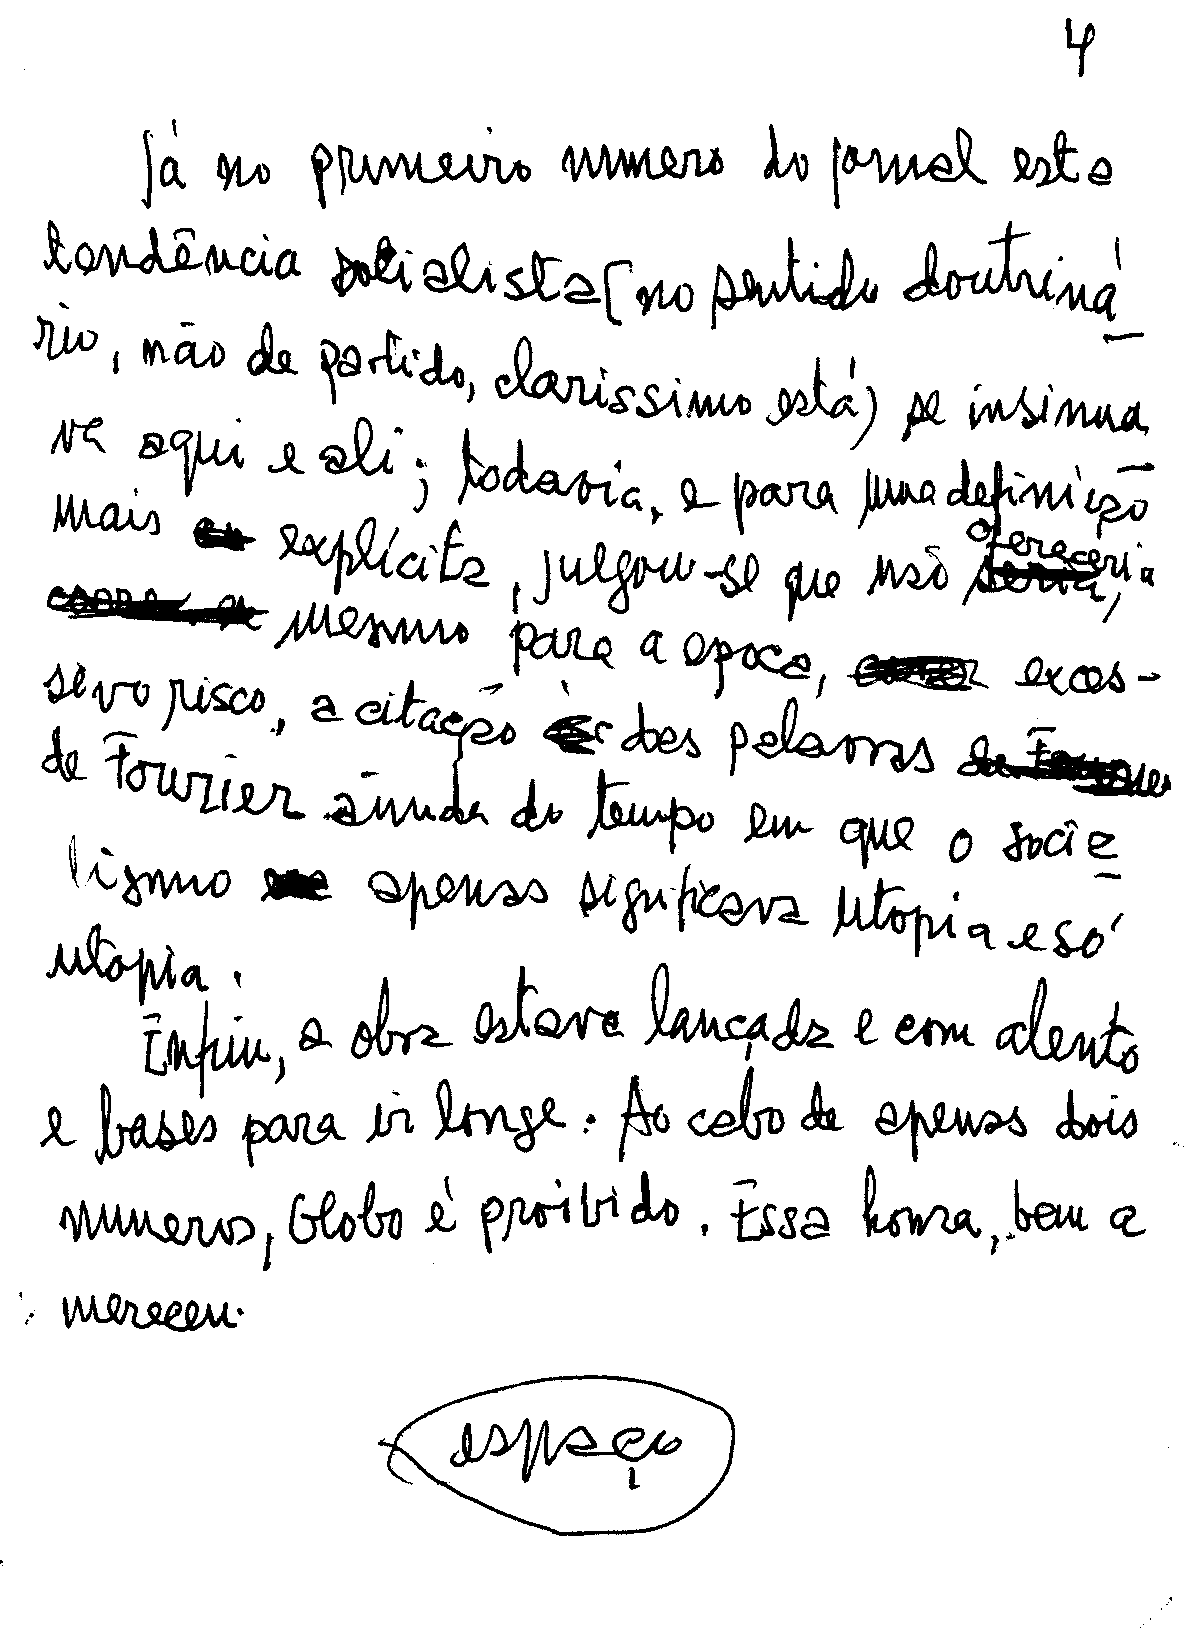 4
Já no primeiro numero do jornal esta
tendência socialista (no sentido doutriná
rio, não de partido, claríssimo está) se insinua
va aqui e ali; todavia, e para uma definição
mais explícita, julgou-se que não ofereceria,
mesmo para a epoca, exces-
sivo risco, a citação das palavras
de Fourier ainda do tempo em que o socia
lismo apenas significava utopia e só
utopia.
Enfim, a obra estava lançada e com alento
e bases para ir longe. Ao cabo de apenas dois
numeros, Globo é proibido. Essa honra, bem a
mereceu.
espaço